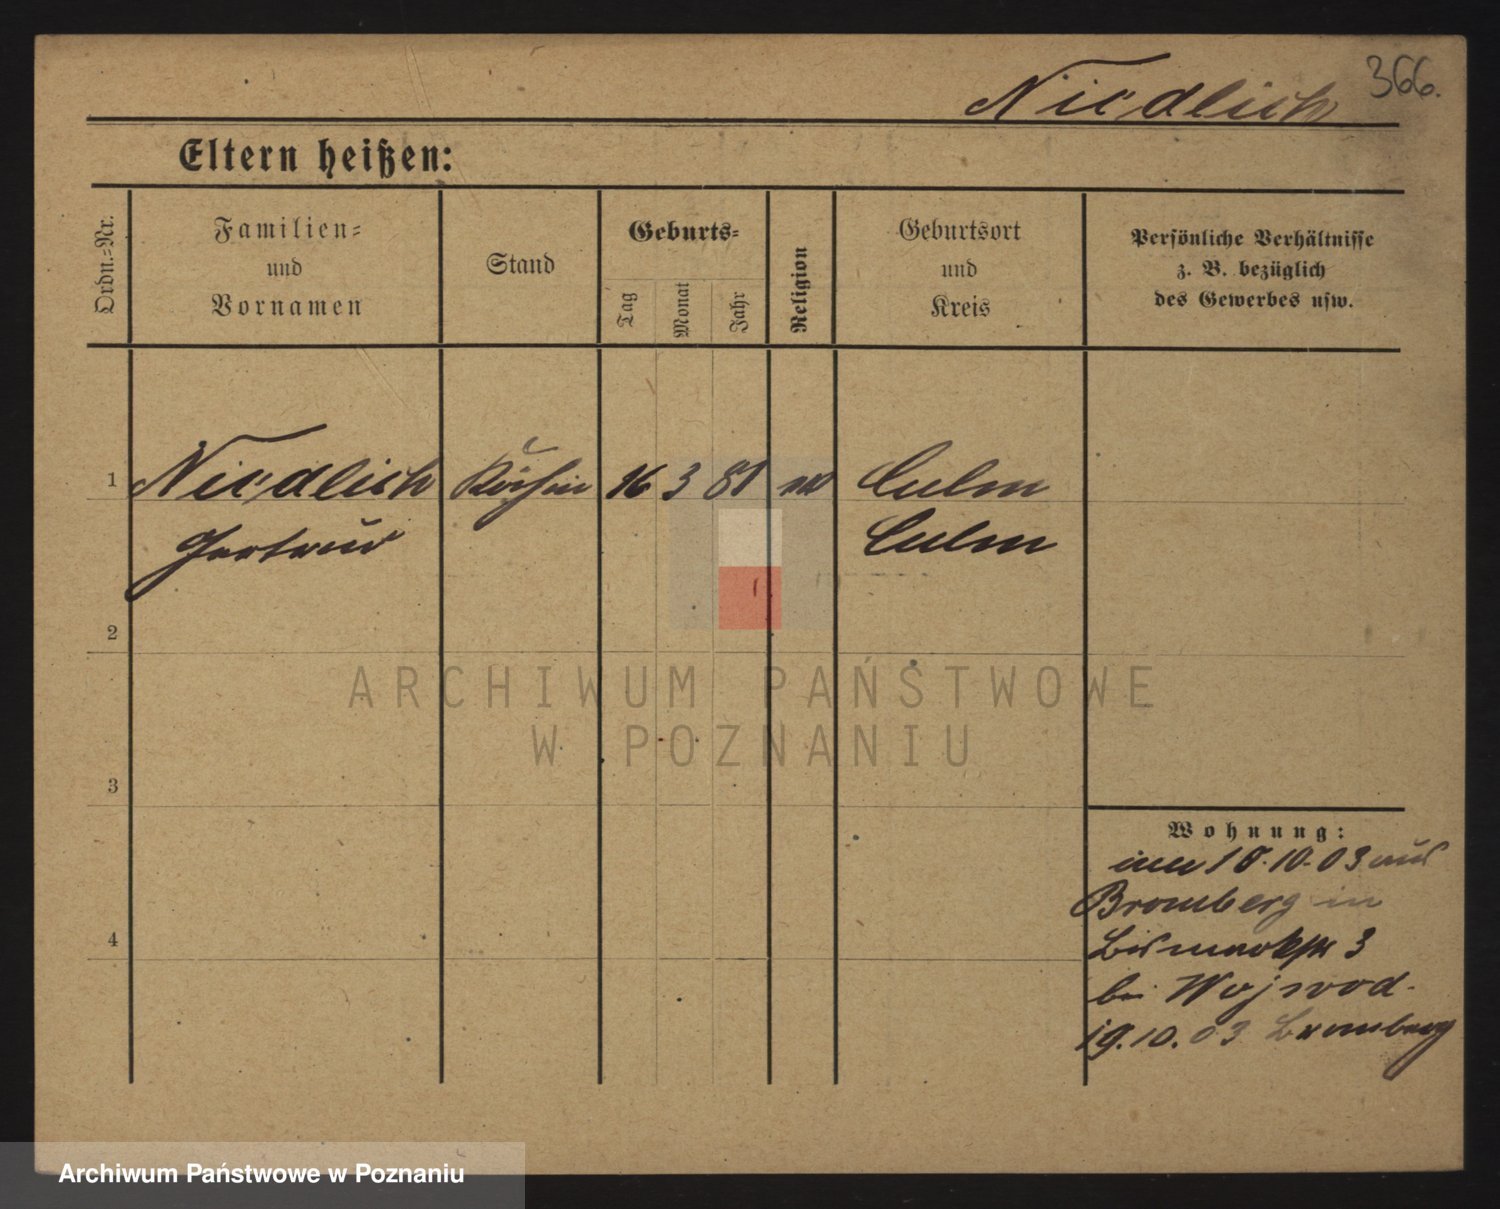 366.
Niedlich
Eltern heißen:
Ordn.-Nr.
Familien-
und
Vornamen
Stand
Geburts-
Tag
Monat
Jahr
Religion
Geburtsort
und
Kreis
Persönliche Verhältnisse
z. B. bezüglich
des Gewerbes usw.
1
Niedlich
Köchin
16
3
81
Culm
Gertrud
Culm
2
3
4
Wohnung:
10.03 aus
Bromberg in
Bismarckstr 3
bei Wojwod.
19.10.03 Bromberg
ARCHIWUM PAŃSTWOWE
W POZNANIU
Archiwum Państwowe w Poznaniu